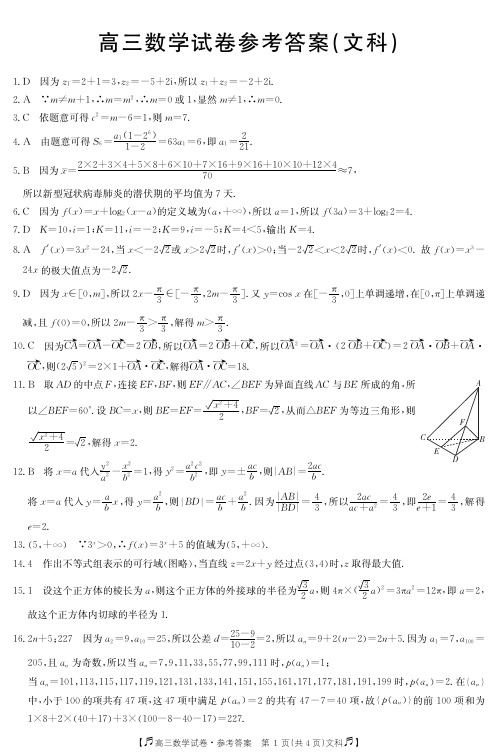 高三数学试卷参考答案(文科)
1. D 因为z₁=2+1=3,z₂=-5+2i,所以z₁+z₂=-2+2i.
2. A ∵m≠m+1,∴m=m²,∴m=0或1,显然m≠1,∴m=0.
3. C 依题意可得c²=m-6=1,则m=7.
4. A 由题意可得S₆=a₁(1-2⁶)/(1-2)=63a₁=6,即a₁=2/21.
5. B 因为x̄=(2×2+3×4+5×8+6×10+7×16+9×16+10×10+12×4)/70≈7,
所以新型冠状病毒肺炎的潜伏期的平均值为7天.
6. C 因为f(x)=x+log₂(x-a)的定义域为(a,+∞),所以a=1,所以f(3a)=3+log₂2=4.
7. D K=10,i=1;K=11,i=-2;K=9,i=-5;K=4<5,输出K=4.
8. A f′(x)=3x²-24,当x<-2√2或x>2√2时,f′(x)>0;当-2√2<x<2√2时,f′(x)<0. 故f(x)=x³-
24x的极大值点为-2√2.
9. D 因为x∈[0,m],所以2x-π/3∈[-π/3,2m-π/3].又y=cos x在[-π/3,0]上单调递增,在[0,π]上单调递
减,且f(0)=0,所以2m-π/3>π/3,解得m>π/3.
10. C 因为CA→=OA→-OC→=2OB→,所以OA→=2OB→+OC→,所以OA→²=OA→·(2OB→+OC→)=2OA→·OB→+OA→·
OC→,则(2√5)²=2×1+OA→·OC→,解得OA→·OC→=18.
11. B 取AD的中点F,连接EF,BF,则EF∥AC,∠BEF为异面直线AC与BE所成的角,所
以∠BEF=60°.设BC=x,则BE=EF=√(x²+4)/2,BF=√2,从而△BEF为等边三角形,则
√(x²+4)/2=√2,解得x=2.
A
F
C
B
E
D
12. B 将x=a代入y²/a²-x²/b²=1,得y²=a²c²/b²,即y=±ac/b,则|AB|=2ac/b.
将x=a代入y=a/b x,得y=a²/b,则|BD|=ac/b+a²/b.因为|AB|/|BD|=4/3,所以2ac/(ac+a²)=4/3,即2e/(e+1)=4/3,解得
e=2.
13. (5,+∞) ∵3ˣ>0,∴f(x)=3ˣ+5的值域为(5,+∞).
14. 4 作出不等式组表示的可行域(图略),当直线z=2x+y经过点(3,4)时,z取得最大值.
15. 1 设这个正方体的棱长为a,则这个正方体的外接球的半径为√3/2 a,则4π×(√3/2 a)²=3πa²=12π,即a=2,
故这个正方体内切球的半径为1.
16. 2n+5;227 因为a₂=9,a₁₀=25,所以公差d=(25-9)/(10-2)=2,所以aₙ=9+2(n-2)=2n+5.因为a₁=7,a₁₀₀=
205,且aₙ为奇数,所以当aₙ=7,9,11,33,55,77,99,111时,p(aₙ)=1;
当aₙ=101,113,115,117,119,121,131,133,141,151,155,161,171,177,181,191,199时,p(aₙ)=2.在{aₙ}
中,小于100的项共有47项,这47项中满足p(aₙ)=2的共有47-7=40项,故{p(aₙ)}的前100项和为
1×8+2×(40+17)+3×(100-8-40-17)=227.
【高三数学试卷·参考答案 第1页(共4页)文科】